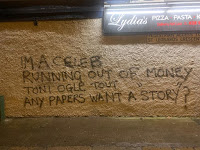 Lydia's PIZZA PASTA K
I'M A CELEB
RUNNING OUT OF MONEY
TONI OGLE TOUT
ANY PAPERS WANT A STORY?